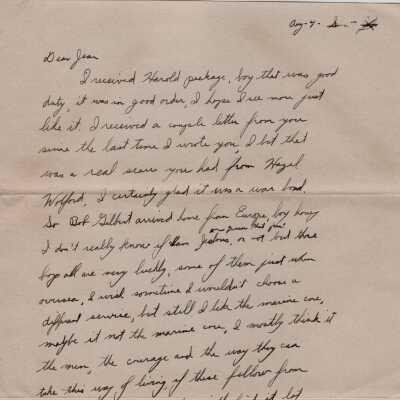 Aug-4-
Dear Jean
I received Harold package, boy that was good
duty, it was in good order, I hope I see more just
like it. I received a couple letter from you
since the last time I wrote you, I bet that
was a real scare you had from Hazel
Wolford, I certainly glad it was a war bond.
So Bob Gilbert arrived home from Europe, boy honey
I don't really know if I am Jealous, or not but those
boys all are very lucky, some of them just when
oversea, I wish sometime I wouldn't choose a
different service, but still I like the marine core,
maybe it not the marine core, I mostly think it
the men, the courage and the way they can
take this way of living, if these fellow from